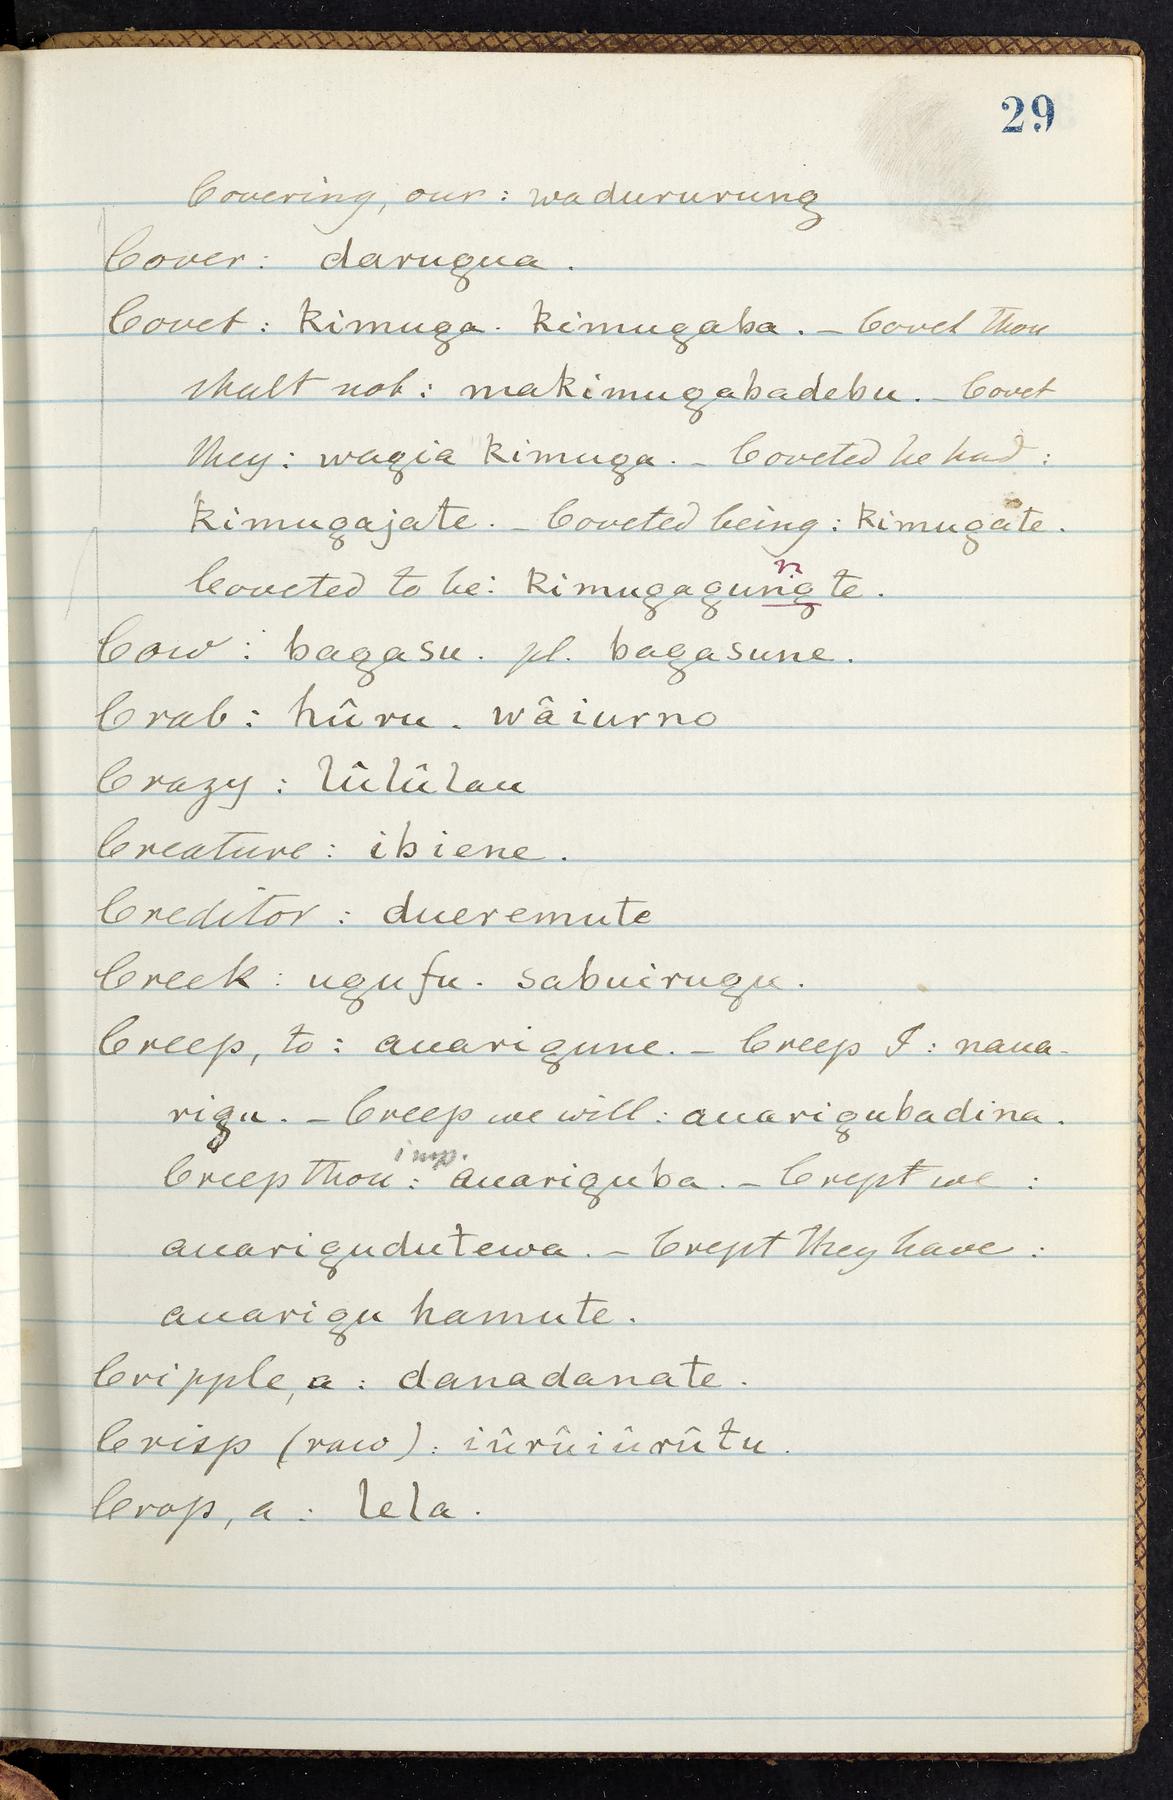 29
Covering, our: wadururung
Cover: darugua.
Covet: kimuga. kimugaba. – Covet thou
shalt not: makimugabadebu. – Covet
they: wagia kimuga. – Coveted he had:
kimugajate. – Coveted being: kimugate.
n
Coveted to be: kimugagungte.
Cow: bagasu. pl. bagasune.
Crab: hûru. wâiurno
Crazy: lûlûlau
Creature: ibiene.
Creditor: dueremute
Creek: ugufu. sabuirugu.
Creep, to: auarigune. – Creep I: naua-
rigu. – Creep we will: auarigubadina.
imp.
Creep thou: auariguba. – Crept we:
auarigudutewa. – Crept they have:
auarigu hamute.
Cripple, a: danadanate.
Crisp (raw): iûrûiûrûtu.
Crop, a: lela.